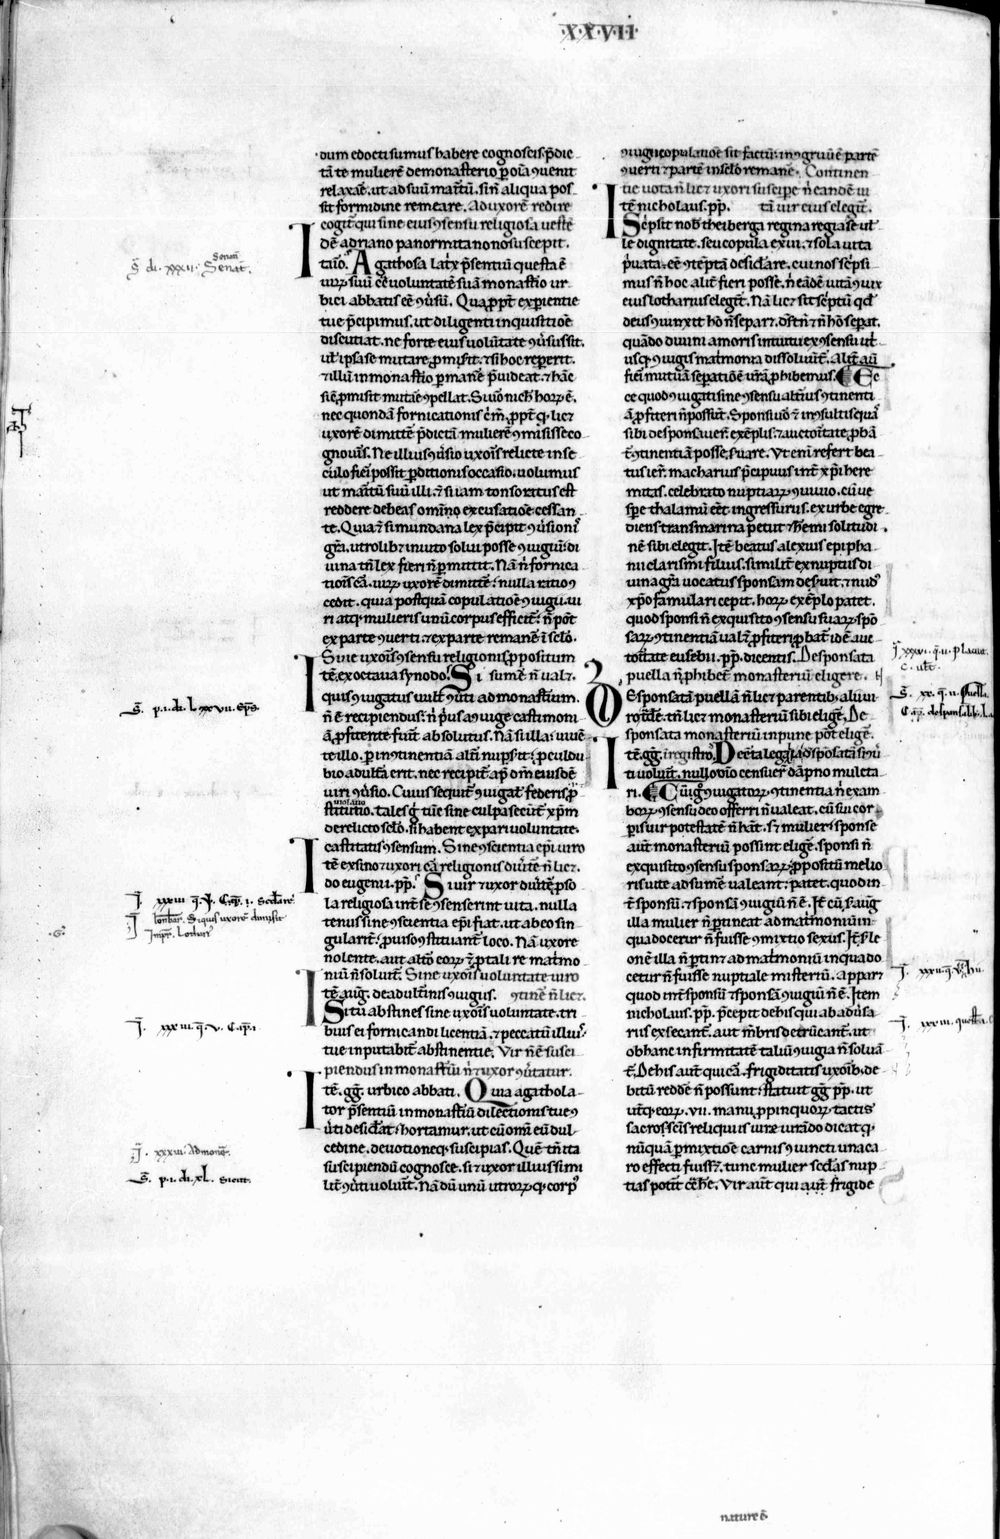 XXVII
dum edocti sumus habere cognoscis. p̄dic
tā te mulierē de monasterio ꝑ oīa ꝯuenit
relaxare. ut ad suū maritū. sin̄ aliqua pos
sit formidine remeare. Ad uxorē redire
cogit̄ qui sine eius ꝯsensu religiosa uestē
Itē adriano panormitano nō suscepit.
Agathosa lat̄x p̄sentiū questa ē
uirū suū cē uoluntatē suā monastīo ur
bici abbatis eē ꝯūsū. Qua ꝓpt̄ experientie
tue p̄cipimus. ut diligenti inquisitiōe
discutiat. ne forte eius volūtate ꝯūsus sit.
ul̄ ipsa se mutare ꝓmisit. ⁊ si hoc repererit.
⁊ illū in monastīo ꝑmanē p̄uideat. ⁊ hāc
sic̄ ꝓmisit mutare ꝯpellat. Si uō nich̄ horꝝ ē.
nec quondā fornicationis c̄m̄. ꝓpt̄ qd̄ licꝫ
uxorē dimittē p̄dictā mulierē ꝯmisisse co
gnouis. Ne illius ꝯūsio uxoris relicte in se
culo fieri possit ꝑditionis occasio. uolumus
ut maritū suū illi. ⁊ si iam tonsoratus est
reddere debeas omīno excusatiōe cessan
te. Quia ⁊ si mundana lex p̄cipit ꝯūsionis
gr̄a. utrolibꝫ inuito solui posse ꝯiugiū. di
uina tn̄ lex fieri n̄ ꝑmittit. Nā n̄ fornica
tiōis cā. uirū uxorē dimittē. nulla ratio ꝯ
cedit. quia postquā copulatiōe ꝯiugii. ui
ri atqꝫ mulieris unū corpus efficit̄. n̄ pōt
ex parte ꝯuerti. ⁊ ex parte remanē ī sc̄lo.
Sine uxoris ꝯsensu religionis ꝓpositum
Itē. ex octaua synodo. Si sumē n̄ ualꝫ.
quis ꝯiugatus uult ꝯūti ad monastīum.
n̄ ē recipiendus. n̄ p̄us a ꝯiuge castimoni
ā ꝓfitente fuīt absolutus. Nā si illa uiuē
te illo. ꝑ incōtinentiā alt̄i nupsīt. ꝓcul du
bio adultā erit. nec recipit̄ ap̄ dm̄ eiusdē
uiri ꝯūsio. Cuius sequit̄ ꝯiugal̄ federis ꝓ
stitutio. tales g̅ tūc sine culpa secūt̄ xp̄m
derelicto sc̄lo. n̄ habent ex pari uoluntate.
castitatis ꝯsensum. Sine ꝯscientia ep̄i uiro
Itē ex sinodo uxori cā religionis diūtē n̄ licꝫ.
eugenii. pp̄. Si uir ⁊ uxor diūtē ꝓ so
la religiosa int̄ se ꝯsenserint uita. nulla
tenus sine ꝯscientia ep̄i fiat. ut ab eo sin
gularit̄ ꝓuiso ꝯstituant̄ loco. Nā uxore
nolente. aut alt̄o eorꝝ ⁊ ꝓ tali re mat̄mo
niū n̄ soluit̄. Sine uxoris uoluntate uiro
Itē. aug̅. de adult̄inis ꝯiugiis. ꝯtinē n̄ licꝫ.
Si tu abstines sine uxoris uoluntate. tri
buis ei fornicandi licentiā. ⁊ peccatū illiu᷒
tue inputabit̄ abstinentie. Vir n̄ ē susci
piendus in monastīū n̄ ⁊ uxor ꝯūtatur.
Itē. gg̅. urbico abbati. Quia agathola
tor p̄sentiū in monastīū dilectionis tue ꝯ
ūti desidāt. hortamur. ut cū om̄i eū dul
cedine. deuotioneqꝫ suscipias. Quē tn̄ ita
suscipiendū cognosce. si ⁊ uxor illius simi
lit̄ ꝯūti uoluīt. Nā dū unū utrorꝝqꝫ corp᷒
ꝯiugii copulatiōe sit factū. incōgruū ē partē
ꝯuerti ⁊ partē in sc̄lo remanē. Continen
tie uota n̄ licꝫ uxori suscipe n̄ eandē ui
Itē nicholaus. pp̄. tā uir eius elegit̄.
Scripsit nob̄ theiberga regina regia se ul̄
le dignitate. seu copula exui. ⁊ sola uita
p̄uata. eē ꝯtēptā desidare. cui nos sc̄psi
mus n̄ hoc alit̄ fieri posse. n̄ eādē uitā ꝯiux
eius lotharius elegit̄. Nā licꝫ sit sc̄ptū qd̄
deus ꝯiunxit hō n̄ separꝫ. d's tn̄ ⁊ n̄ hō sepat.
quādo diuini amoris intuitu ex ꝯsensu ut
usqꝫ ꝯiugis mat̄monia dissoluūt̄. Alit̄ aū
fieri mutuā seꝑatiōē uīrā ꝓhibemus. Ec
ce quod ꝯiugati sine ꝯsensu alt̄ius ꝯtinenti
ā ꝓfiteri n̄ possūt. Sponsi uō ⁊ incōsultis quā
sibi desponsauer̄. exēplis. ⁊ auctoritate ꝓbā
t̄. ꝯtinentiā posse ꝓfuare. Vt eni refert bea
tus ier̄. macharius p̄cipuus int̄ xp̄i here
mitas. celebrato nuptiarꝝ ꝯuiuio. cū ue
spe thalamū eēt ingressurus. ex urbe egre
diens transmarina petiit ⁊ h'emi solitudi
nē sibi elegit. Itē beatus alexius epipha
nii clarissimi filius. similit̄ ex nuptiis di
uina gr̄a uocatus sponsam deseruit. ⁊ nud᷒
xp̄o famulari cepit. horꝝ exēplo patet.
quod sponsi n̄ exquisito ꝯsensu suarꝝ spō
sarꝝ ꝯtinentiā ualꝫ ꝓfiteri. ꝓbat̄ idē auc
toritate eusebii. pp̄. dicentis. Desponsata
puella n̄ ꝓhibet̄ monasteriū eligere.
Desponsatā puellā n̄ licꝫ parentibꝫ alii ui
ro t̄dē. tn̄ licꝫ monasteriū sibi eligē. De
sponsata monasteriū inpune pōt eligē.
Itē. gg̅. in registro. Dec̄ta legaliā dsp̄osatā si ꝯū
ti uoluīt̄. nullo oīo censuer̄ dāpno mulcta
ri. Cū igr̄ ꝯiugatorꝝ ꝯtinentia n̄ ex am
borꝝ ꝯsensu deo offerri n̄ ualeat. cū sui cor
ꝑis uir potestatē n̄ hāt. sꝫ mulier. sponse
aūt monasteriū possint eligē. sponsi n̄
exquisito ꝯsensu sponsarꝝ. ꝓpositū melio
ris uite adsumē ualeant. patet. quod in
t̄ sponsū ⁊ sponsā ꝯiugiū n̄ ē. It̄ cū s' aug̅
illa mulier n̄ ꝑtineat ad mat̄monium. in
qua docetur n̄ fuisse ꝯmixtio sexus. It̄ s' le
onē illa n̄ ꝑtinꝫ ad mat̄moniū in qua do
cetur n̄ fuisse nuptiale misteriū. apparꝫ
quod int̄ sponsū ⁊ sponsā ꝯiugiū n̄ ē. Item
nicholaus. pp̄. p̄cepit de his qui ab adūsa
riis exsecant̄. aut mēbris detrūcant̄. ut
ob hanc infirmitatē taliū ꝯiugia n̄ soluā
t̄. De his aūt qui cā frigiditatis uxorib᷒ de
bitū reddē n̄ possunt. statuit gg̅ pp̄. ut
ut̄qꝫ eorꝝ. vii. manu ꝓpinquorꝝ tactis
sacros̄c̄is reliquiis iure iurādo dicat qd̄
nūquā ꝑ mixtiōē carnis ꝯiuncti una ca
ro effecti fuissꝫ. tunc mulier secd̄as nup
tias potit̄ ctͤhe. Vir aūt qui aūt frigide
S̄. di. xxxii. Senat̄.
S̄. p. i. di. lxxvii. Ep̄s.
J̄. xxxiii. q̄. v. C. ap̄. i.
J̄. xxxiii. Admone.
S̄. p. i. di. xl. Sicut.
J̄. xxxvi. q̄. ii. placuit.
S̄. xx. q̄. ii. Puella.
nature ē